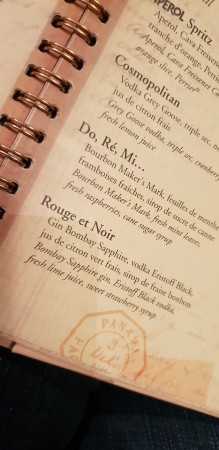 APEROL Spritz
Aperol, Cava Freixenet
tranche d'orange, Per
Aperol, Cava Freixenet C
orange slice, Perrier
Cosmopolitan
Vodka Grey Goose, triple sec,
jus de citron frais
Grey Goose vodka, triple sec, cranberry
fresh lemon juice
Do, Ré, Mi...
Bourbon Maker's Mark, feuilles de menthe
framboises fraîches, sirop de sucre de canne
Bourbon Maker's Mark, fresh mint leaves,
fresh raspberries, cane sugar syrup
Rouge et Noir
Gin Bombay Sapphire, vodka Eristoff Black,
jus de citron vert frais, sirop de fraise bonbon
Bombay Sapphire gin, Eristoff Black vodka,
fresh lime juice, sweet strawberry syrup
PANAMA
3